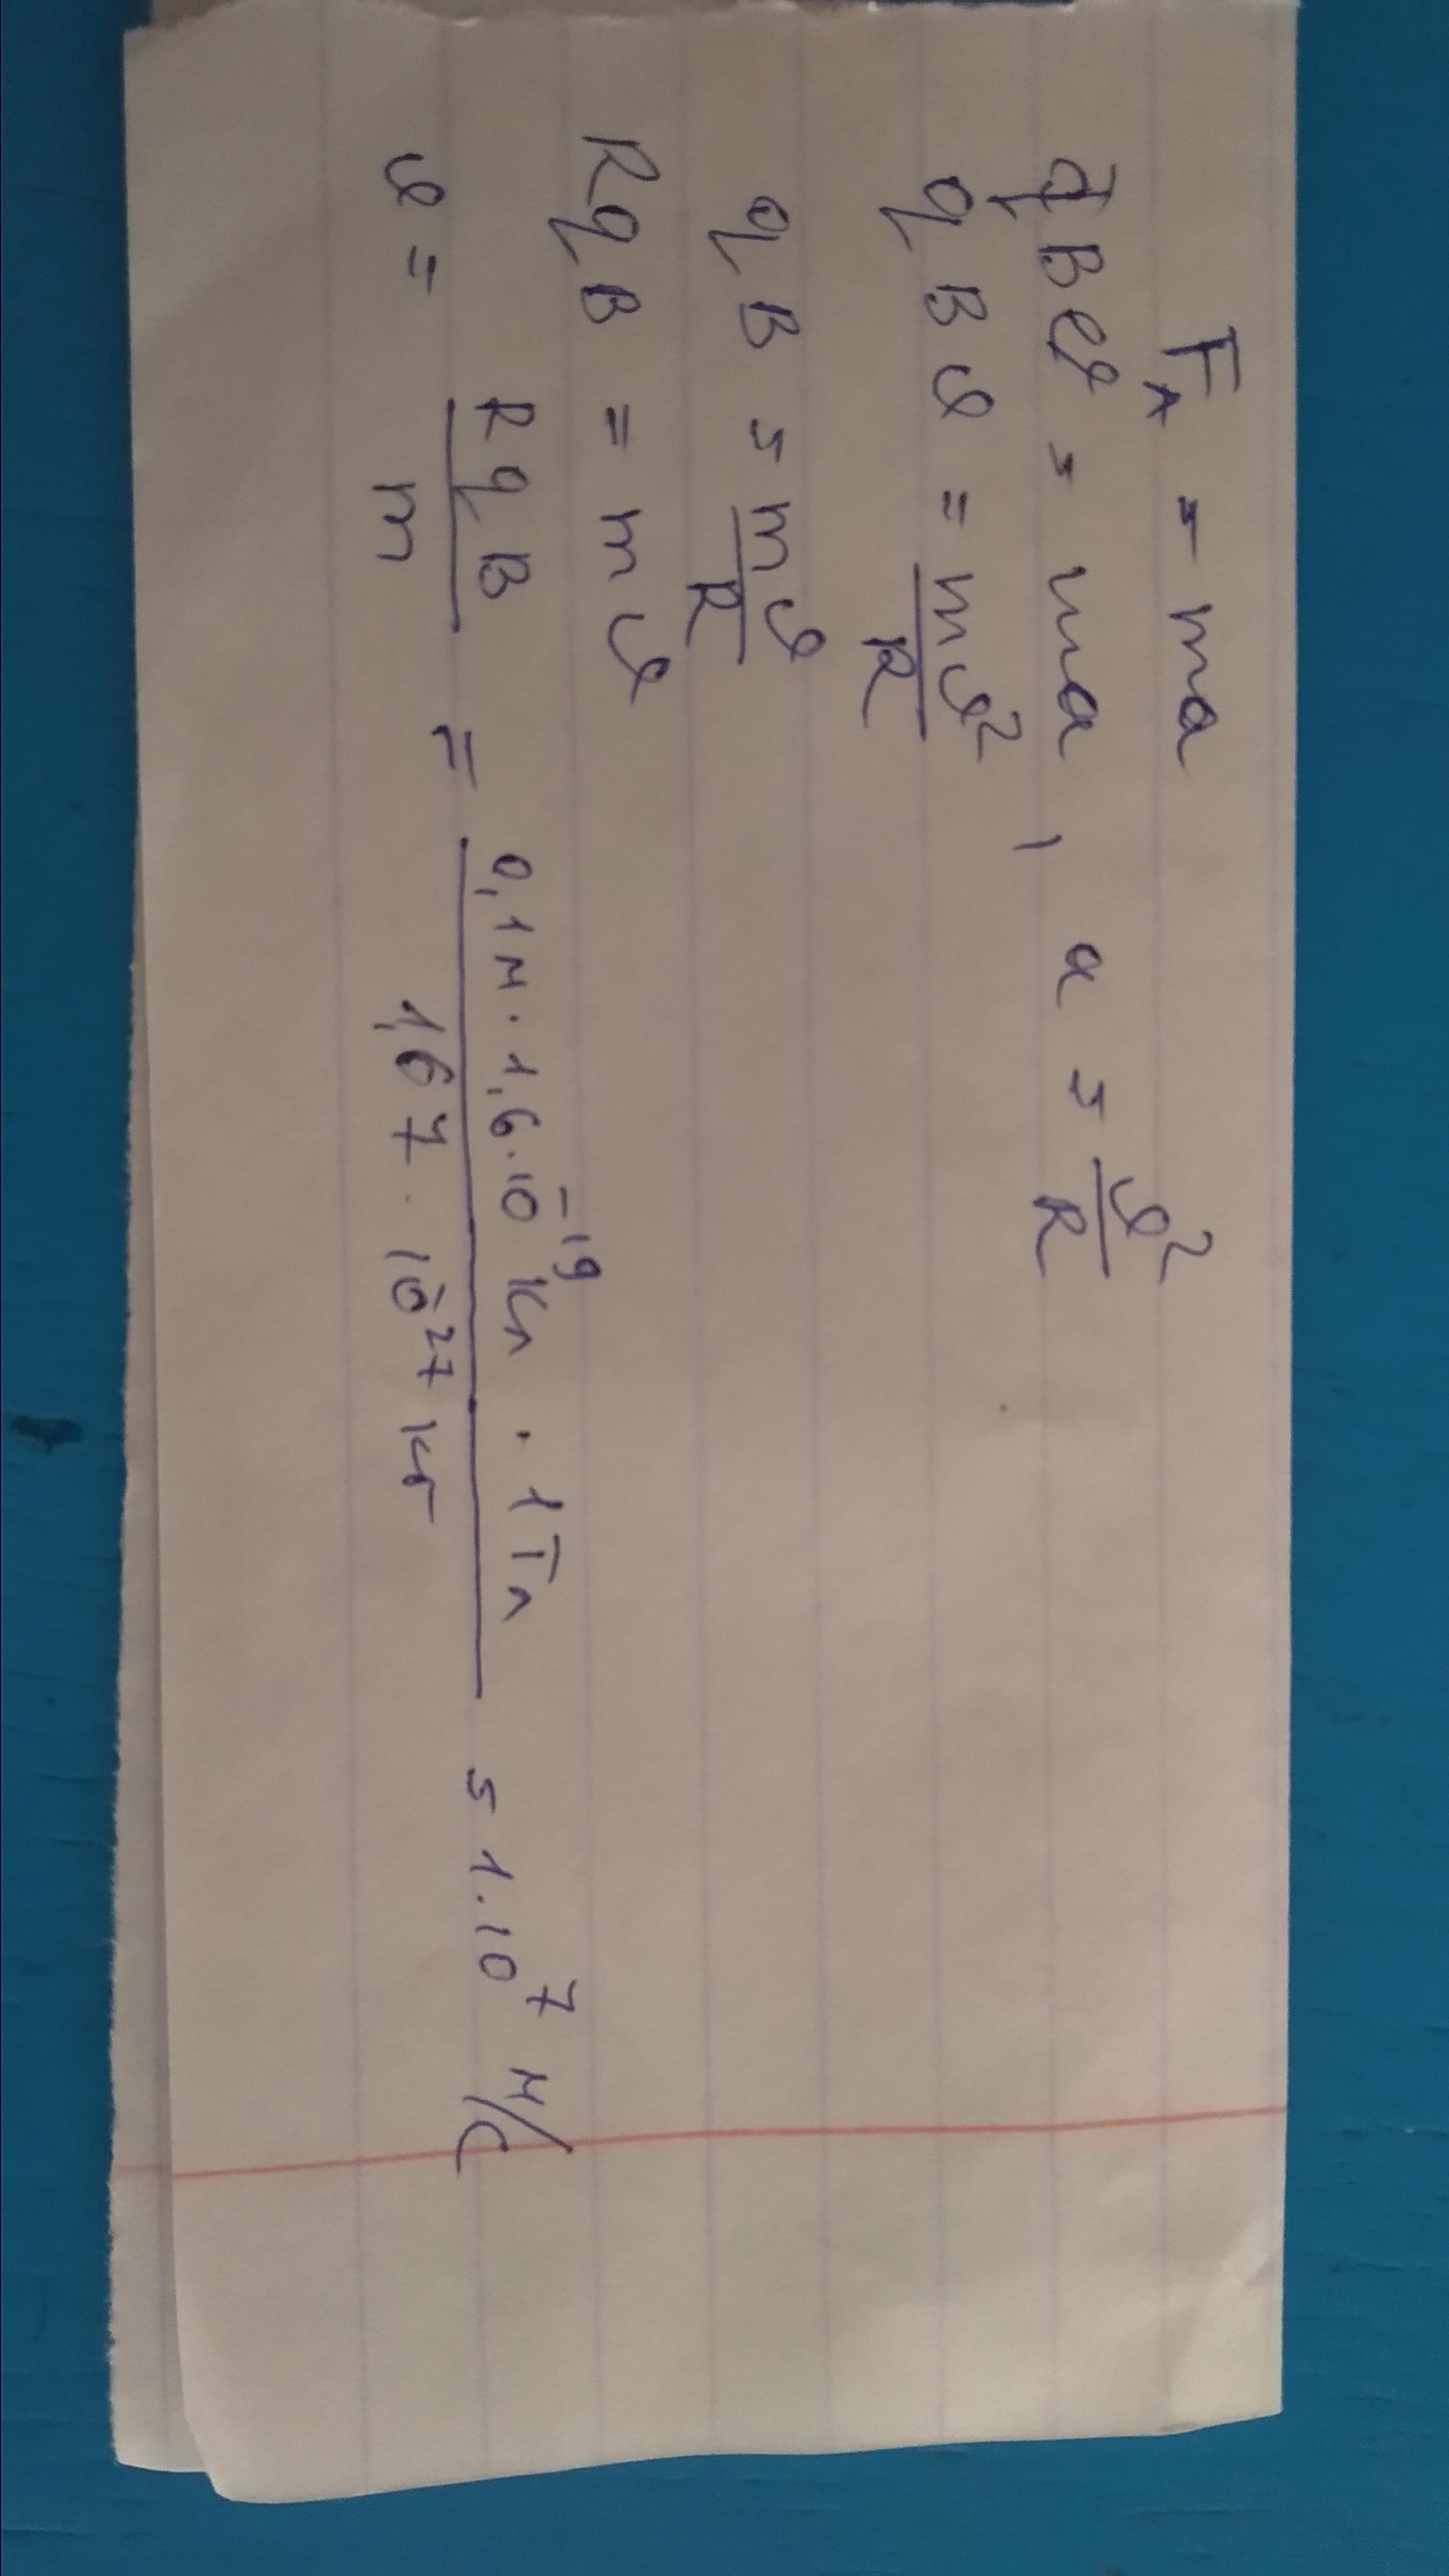 Fл = ma
qBυ = ma, a = υ²/R
qBυ = mυ²/R
qB = mυ/R
RqB = mυ
υ = RqB/m = 0,1м · 1,6·10⁻¹⁹ Кл · 1Тл / 1,67 · 10⁻²⁷ кг = 1·10⁷ м/с